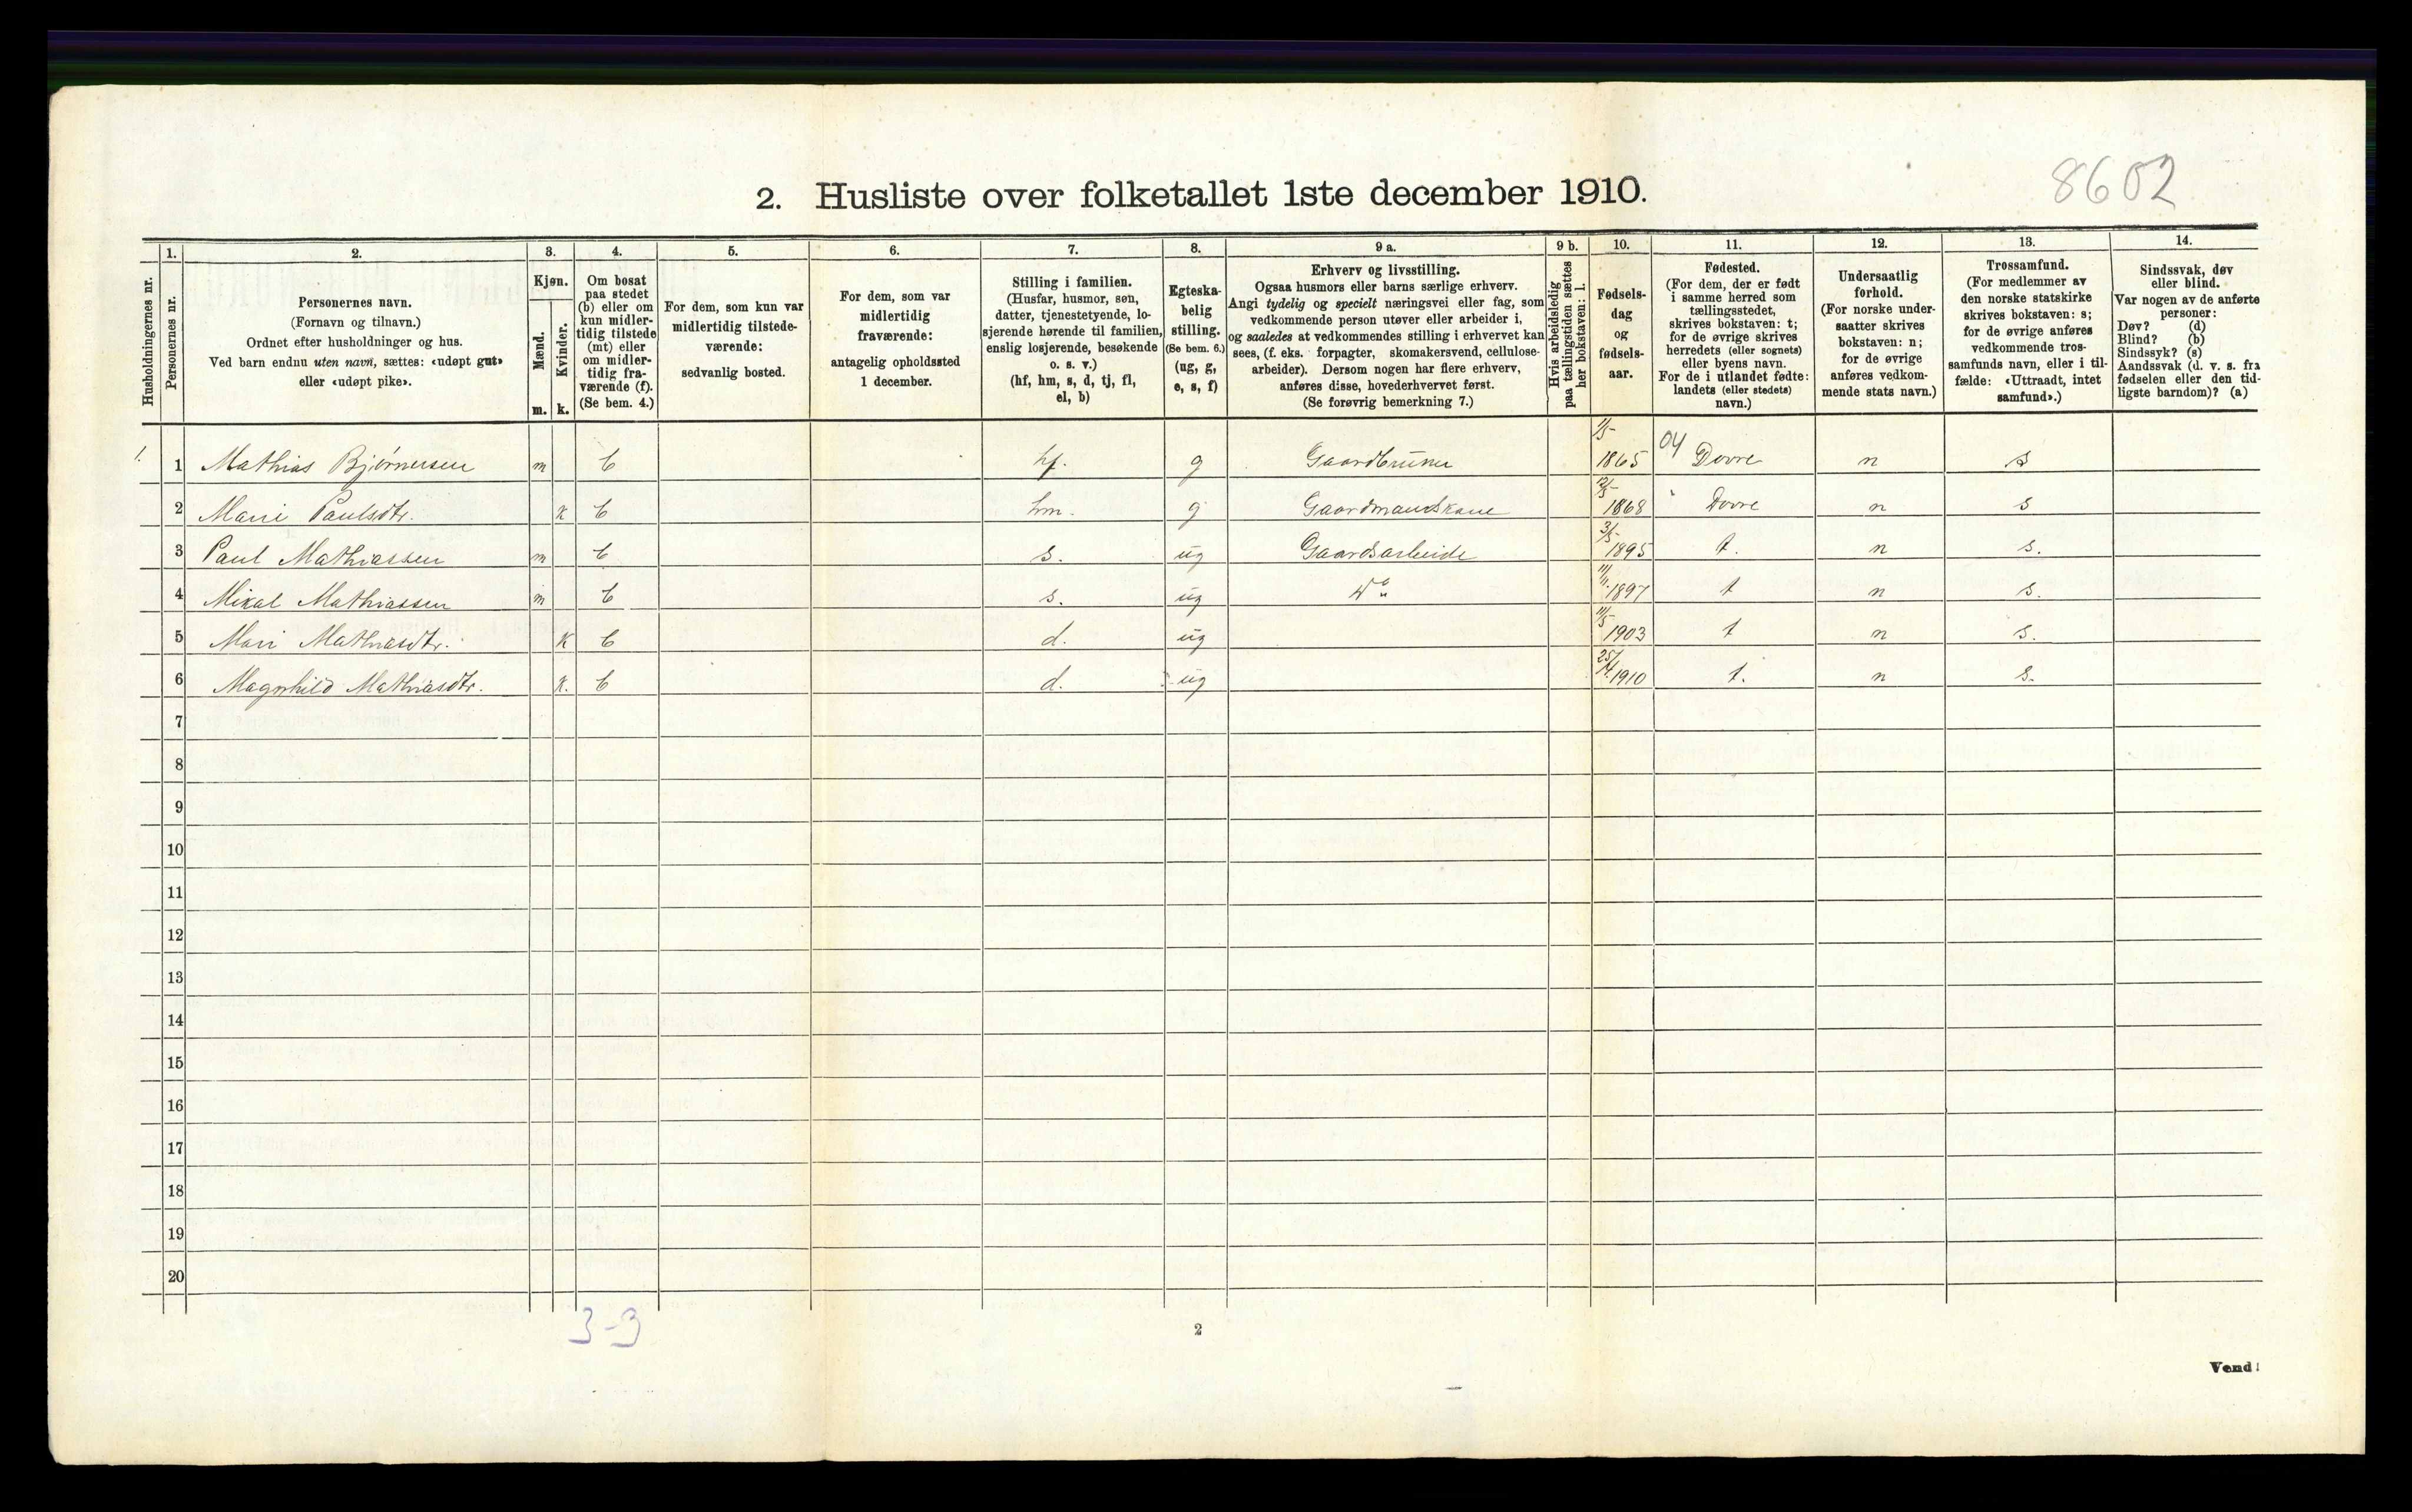 8602
2. Husliste over folketallet 1ste december 1910.
Husholdningernes nr.
1.
Personernes nr.
2.
Personernes navn.
(Fornavn og tilnavn.)
Ordnet efter husholdninger og hus.
Ved barn endnu uten navn, sættes: «udøpt gut»
eller «udøpt pike».
3.
Kjøn.
Mænd.
Kvinder.
m. k.
4.
Om bosat
paa stedet
(b) eller om
kun midler-
tidig tilstede
(mt) eller
om midler-
tidig fra-
værende (f).
(Se bem. 4.)
5.
For dem, som kun var
midlertidig tilstede-
værende:
sedvanlig bosted.
6.
For dem, som var
midlertidig
fraværende:
antagelig opholdssted
1 december.
7.
Stilling i familien.
(Husfar, husmor, søn,
datter, tjenestetyende, lo-
sjerende hørende til familien,
enslig losjerende, besøkende
o. s. v.)
(hf, hm, s, d, tj, fl,
el, b)
8.
Egteska-
belig
stilling.
(Se bem. 6.)
(ug, g,
e, s, f)
9 a.
Erhverv og livsstilling.
Ogsaa husmors eller barns særlige erhverv.
Angi tydelig og specielt næringsvei eller fag, som
vedkommende person utøver eller arbeider i,
og saaledes at vedkommendes stilling i erhvervet kan
sees, (f. eks. forpagter, skomakersvend, cellulose-
arbeider). Dersom nogen har flere erhverv,
anføres disse, hovederhvervet først.
(Se forøvrig bemerkning 7.)
9 b.
Hvis arbeidsledig
paa tællingstiden sættes
her bokstaven: l.
10.
Fødsels-
dag
og
fødsels-
aar.
11.
Fødested.
(For dem, der er født
i samme herred som
tællingsstedet,
skrives bokstaven: t;
for de øvrige skrives
herredets (eller sognets)
eller byens navn.
For de i utlandet fødte:
landets (eller stedets)
navn.)
12.
Undersaatlig
forhold.
(For norske under-
saatter skrives
bokstaven: n;
for de øvrige
anføres vedkom-
mende stats navn.)
13.
Trossamfund.
(For medlemmer av
den norske statskirke
skrives bokstaven: s;
for de øvrige anføres
vedkommende tros-
samfunds navn, eller i til-
fælde: «Uttraadt, intet
samfund».)
14.
Sindssvak, døv
eller blind.
Var nogen av de anførte
personer:
Døv? (d)
Blind? (b)
Sindssyk? (s)
Aandssvak (d. v. s. fra
fødselen eller den tid-
ligste barndom)? (a)
1. 1 Mathias Bjørnersen m b hf. g Gaardbruker 1/5 1865 04 Dovre n s
2 Marie Paulsdtr. k b hm. g Gaardmandskone 12/5 1868 " Dovre n s
3 Paul Mathiassen m b s. ug Gaardsarbeide 3/5 1895 t. n s.
4 Mikal Mathiassen m b s. ug Do 11/11 1897 t n s.
5 Mari Mathiasdtr. k b d. ug 11/5 1903 t n s.
6 Magnhild Mathiasdtr. k. b d. ug 25/4 1910 t. n s.
7
8
9
10
11
12
13
14
15
16
17
18
19
20
3-3
2
Vend!